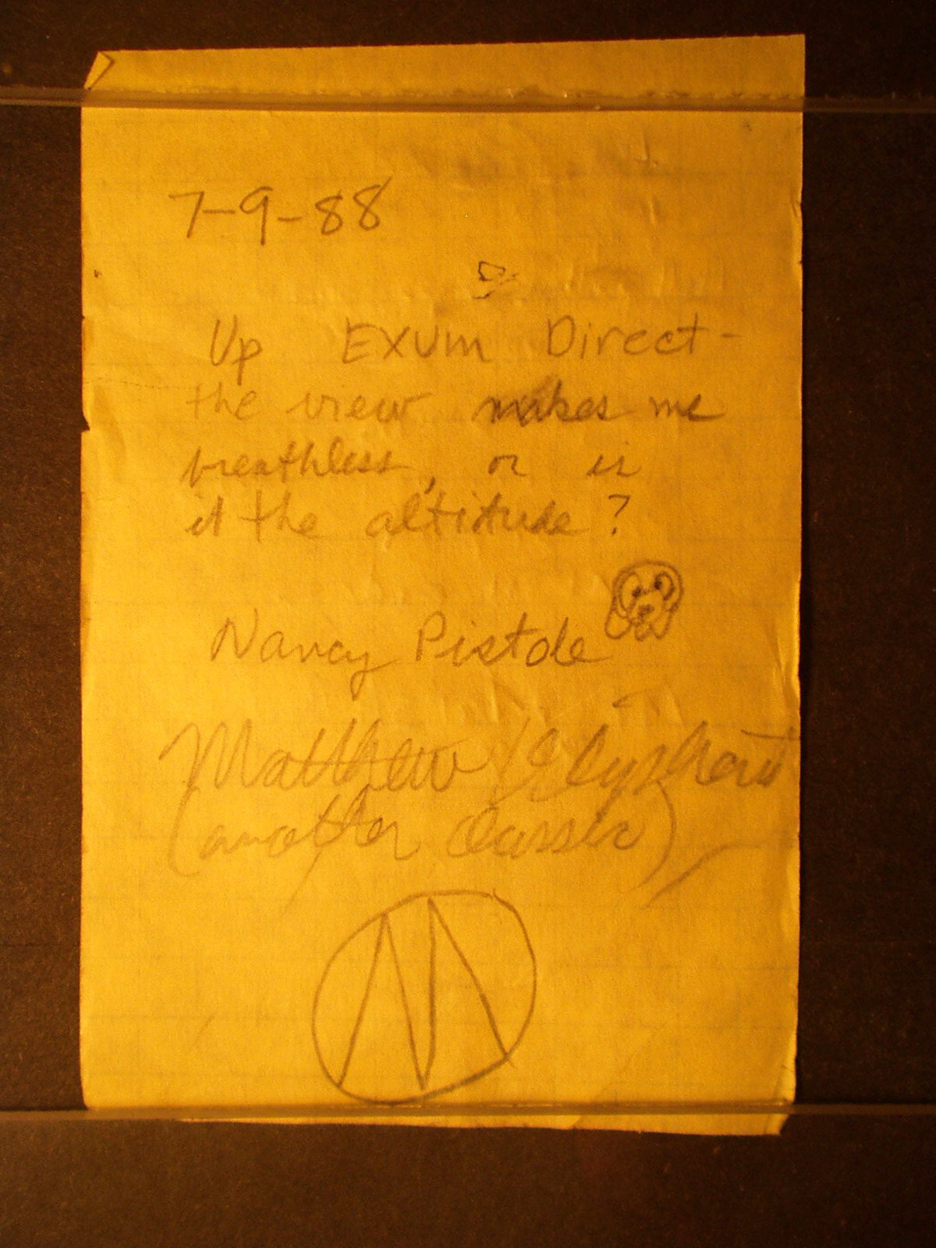 7-9-88
Up Exum Direct-
the view makes me
breathless, or is
it the altitude?
Nancy Pistole
Matthew
(another classic)